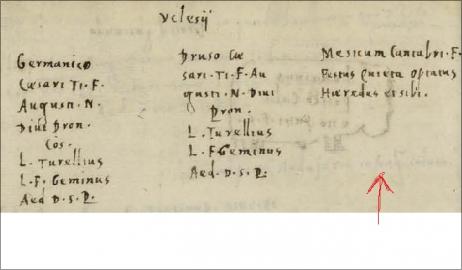 Vclesij
Germanico
Cæsari Ti·F·
Augusti·N·
Diui Pron·
Cos·
L·Turellius
L·F·Geminus
Aed·D·S·P·
Druso Cæ
sari·Ti·F·Au
gusti·N·Diui
Pron·
L·Turellius
L·F·Geminus
Aed·D·S·P·
Mesicum Cantabri·F·
Festus Quieta Optatus
Haeredes et sibi·